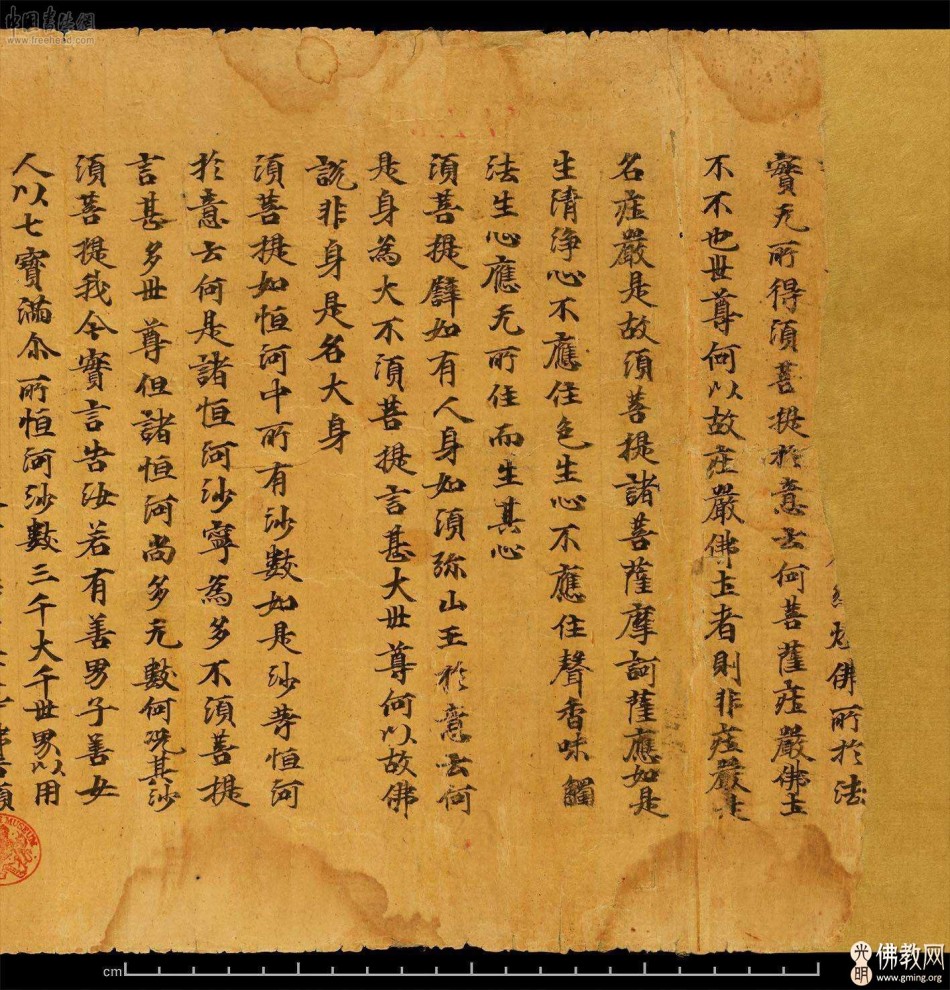 中国書法網
www.freehead.com
佛所於法
實无所得須菩提於意云何菩薩莊嚴佛土
不不也世尊何以故莊嚴佛土者則非莊嚴是
名莊嚴是故須菩提諸菩薩摩訶薩應如是
生清淨心不應住色生心不應住聲香味觸
法生心應无所住而生其心
須菩提譬如有人身如須弥山王於意云何
是身為大不須菩提言甚大世尊何以故佛
說非身是名大身
須菩提如恒河中所有沙數如是沙等恒河
於意云何是諸恒河沙寧為多不須菩提
言甚多世尊但諸恒河尚多无數何況其沙
須菩提我今實言告汝若有善男子善女
人以七寶滿尒所恒河沙數三千大千世界以用
MUSEUM
cm
光明
佛教网
www.gming.org